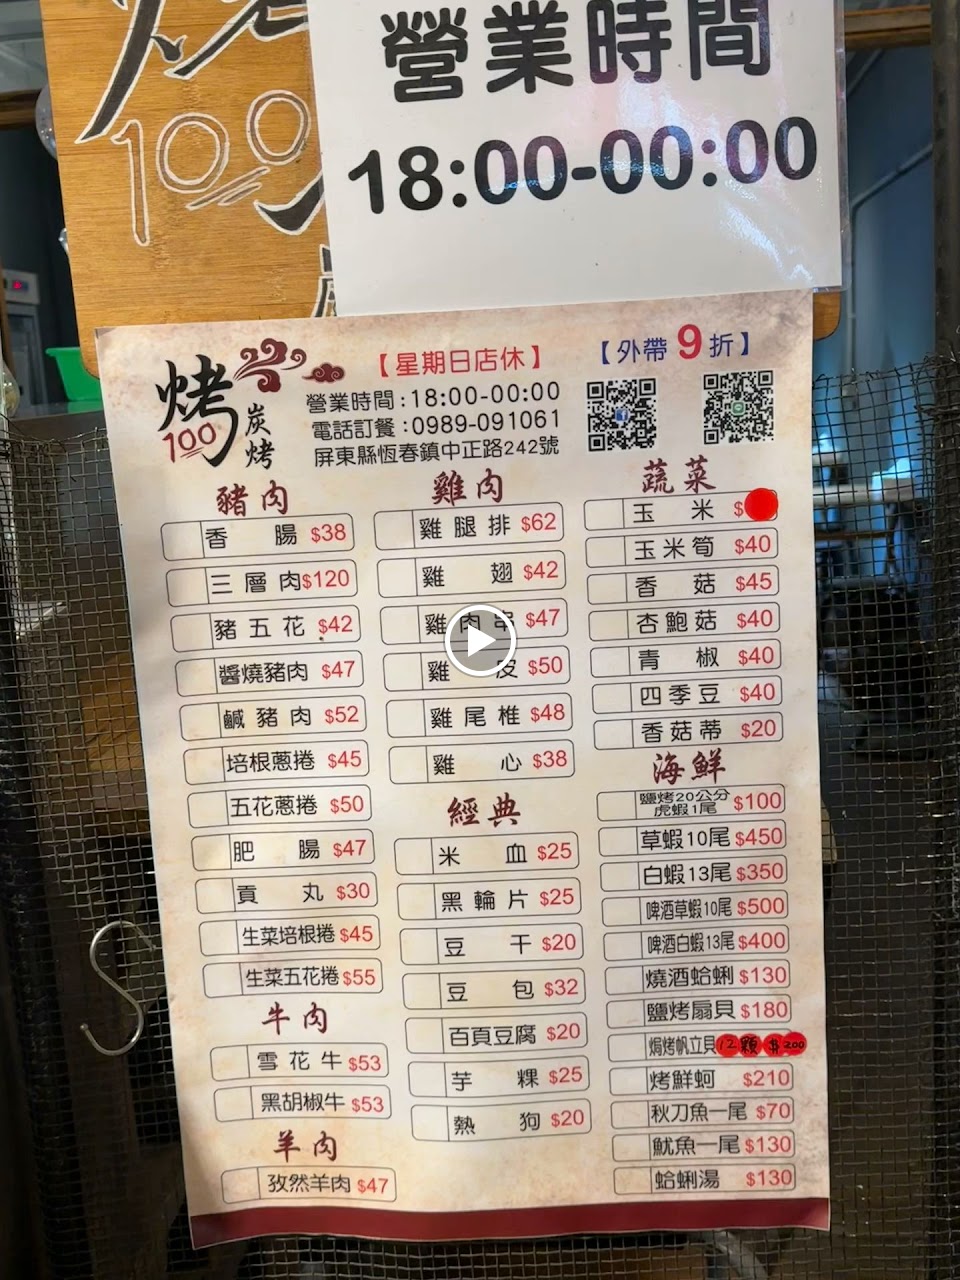 烤
100
營業時間
18:00-00:00
烤
100
炭烤
【星期日店休】
【外帶9折】
營業時間:18:00-00:00
電話訂餐:0989-091061
屏東縣恆春鎮中正路242號
豬肉
香腸 $38
三層肉 $120
豬五花 $42
醬燒豬肉 $47
鹹豬肉 $52
培根蔥捲 $45
五花蔥捲 $50
肥腸 $47
貢丸 $30
生菜培根捲 $45
生菜五花捲 $55
牛肉
雪花牛 $53
黑胡椒牛 $53
羊肉
孜然羊肉 $47
雞肉
雞腿排 $62
雞翅 $42
雞肉串 $47
雞皮 $50
雞尾椎 $48
雞心 $38
經典
米血 $25
黑輪片 $25
豆干 $20
豆包 $32
百頁豆腐 $20
芋粿 $25
熱狗 $20
蔬菜
玉米 $
玉米筍 $40
香菇 $45
杏鮑菇 $40
青椒 $40
四季豆 $40
香菇蒂 $20
海鮮
鹽烤20公分
虎蝦1尾 $100
草蝦10尾 $450
白蝦13尾 $350
啤酒草蝦10尾 $500
啤酒白蝦13尾 $400
燒酒蛤蜊 $130
鹽烤扇貝 $180
焗烤帆立貝 12顆 $200
烤鮮蚵 $210
秋刀魚一尾 $70
魷魚一尾 $130
蛤蜊湯 $130